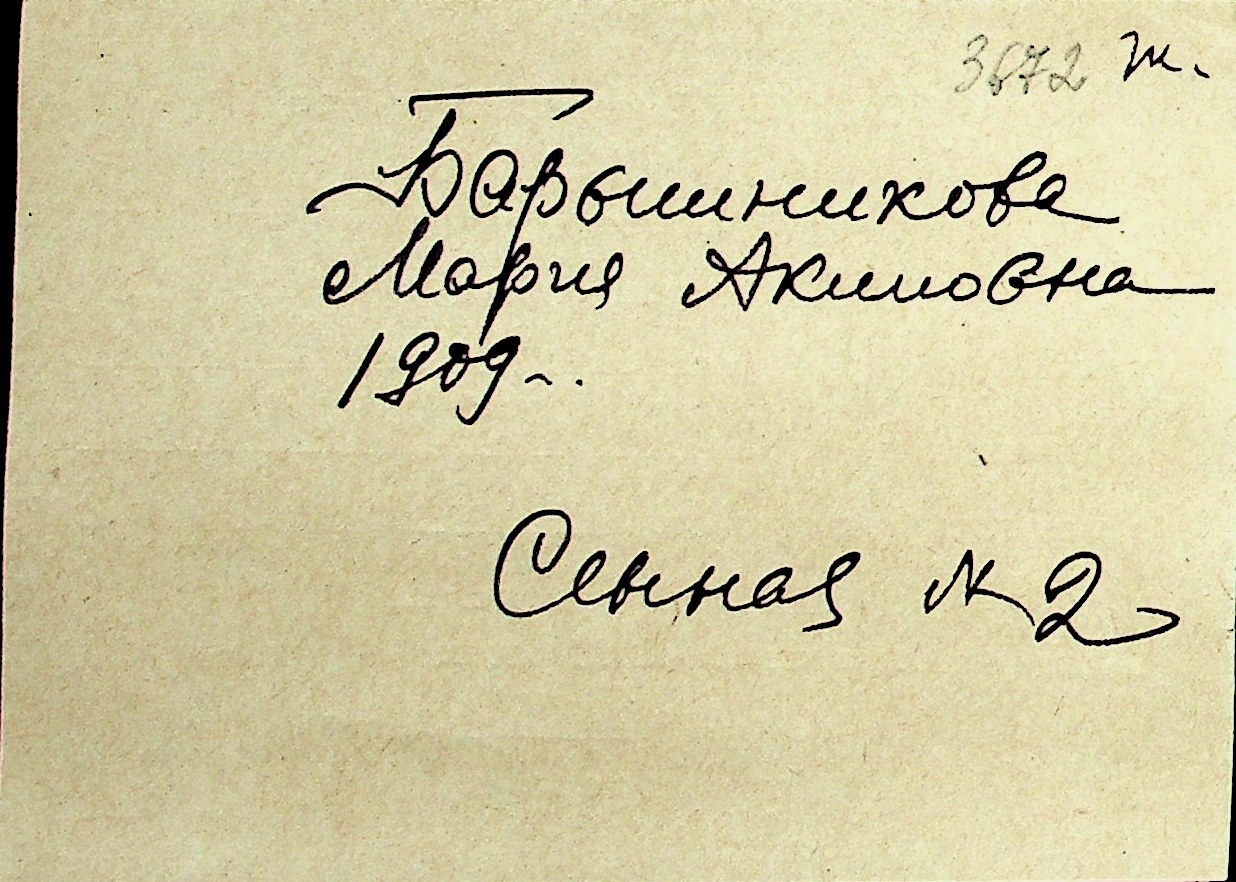 3672 т.
Барышникова
Мария Акимовна
1909 г.
Сенная № 2